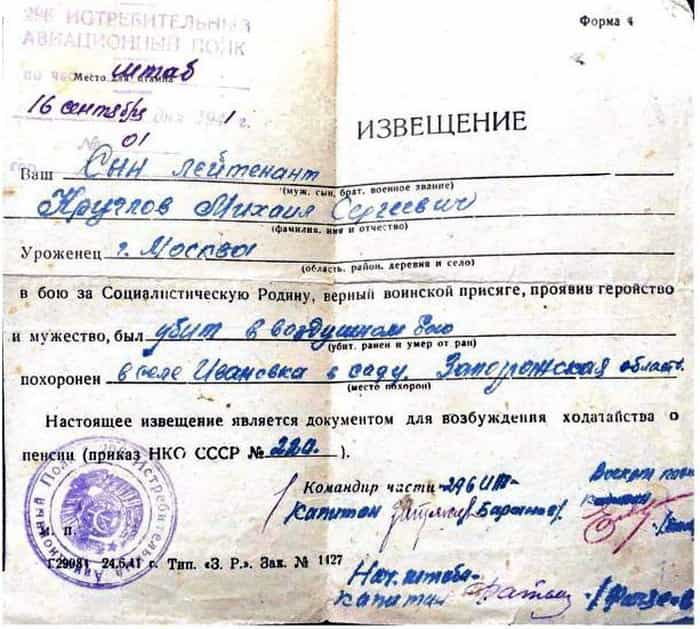 296 ИСТРЕБИТЕЛЬНЫЙ
АВИАЦИОННЫЙ ПОЛК
Форма 4
Место для штампа
штаб
16 сентября дня 1941 г.
№ 01
ИЗВЕЩЕНИЕ
Ваш Сын лейтенант
(муж, сын, брат, военное звание)
Круглов Михаил Сергеевич
(фамилия, имя и отчество)
Уроженец г. Москвы
(область, район, деревня и село)
в бою за Социалистическую Родину, верный воинской присяге, проявив геройство
и мужество, был убит в воздушном бою
(убит, ранен и умер от ран)
похоронен в селе Ивановка в саду Запорожская область.
(место похорон)
Настоящее извещение является документом для возбуждения ходатайства о
пенсии (приказ НКО СССР № 220. ).
Командир части 296
капитан
М. П.
Г29081 24.6.41 г. Тип. «З. Р.». Зак. № 1427
Нач. штаба
капитан